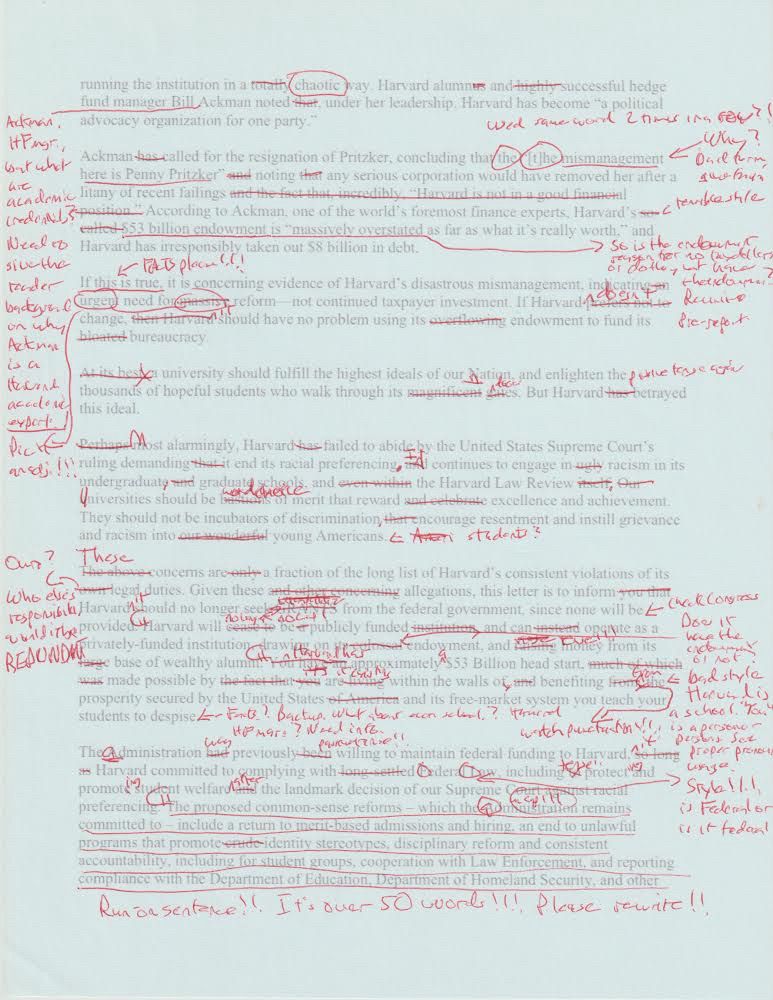 running the institution in a totally chaotic way. Harvard alumnus and highly successful hedge
fund manager Bill Ackman noted that, under her leadership. Harvard has become “a political
advocacy organization for one party.”
Used same word 2 times in a row?!
Ackman,
HF mgr,
but what
are
academic
credentials?
Need to
give the
reader
background
on why
Ackman
is a
Harvard
academic
expert!
Pick
an adj!!!
Ackman has called for the resignation of Pritzker, concluding that the “[t]he mismanagement
here is Penny Pritzker” and noting that any serious corporation would have removed her after a
litany of recent failings and the fact that, incredibly, “Harvard is not in a good financial
position.” According to Ackman, one of the world’s foremost finance experts, Harvard’s so-
called $53 billion endowment is “massively overstated as far as what it’s really worth,” and
Harvard has irresponsibly taken out $8 billion in debt.
Why?
Bad form,
terrible style
So is the endowment
reason for no tax dollars
Facts please!!!
If this is true, it is concerning evidence of Harvard’s disastrous mismanagement, indicating an
urgent need for massive reform—not continued taxpayer investment. If Harvard prefers not to
change, then Harvard should have no problem using its overflowing endowment to fund its
bloated bureaucracy.
doesn't
it
Rewrite
At its best, a university should fulfill the highest ideals of our Nation, and enlighten the
thousands of hopeful students who walk through its magnificent gates. But Harvard has betrayed
this ideal.
n
door
passive tense again
Perhaps most alarmingly, Harvard has failed to abide by the United States Supreme Court’s
ruling demanding that it end its racial preferencing, and continues to engage in ugly racism in its
undergraduate, and graduate schools, and even within the Harvard Law Review itself. Our
universities should be bastions of merit that reward and celebrate excellence and achievement.
They should not be incubators of discrimination, that encourage resentment and instill grievance
and racism into our wonderful young Americans.
M
It
students?
Our?
Who else's
responsibility
would it be
REDUNDANT
These
The above concerns are only a fraction of the long list of Harvard’s consistent violations of its
own legal duties. Given these and other concerning allegations, this letter is to inform you that
Harvard should no longer seek GRANTS from the federal government, since none will be
provided. Harvard will cease to be a publicly funded institution, and can instead operate as a
privately-funded institution, drawing on its colossal endowment, and raising money from its
large base of wealthy alumni. You have an approximately $53 Billion head start, much of which
was made possible by the fact that you are living within the walls of, and benefiting from, the
prosperity secured by the United States of America and its free-market system you teach your
students to despise.
it
H
Harvard has
a
Check Congress
Does it
have the
endowment
or not?
bad style
Harvard is
a school. "You"
is a person or
persons. See
proper pronoun
usage.
Facts? Backup. What about econ school? Harvard
HF mgrs? Need info.
watch punctuation!!!
The Administration had previously been willing to maintain federal funding to Harvard, so long
as Harvard committed to complying with long-settled Federal Law, including to protect and
promote student welfare and the landmark decision of our Supreme Court against racial
preferencing. The proposed common-sense reforms – which the Administration remains
committed to – include a return to merit-based admissions and hiring, an end to unlawful
programs that promote crude identity stereotypes, disciplinary reform and consistent
accountability, including for student groups, cooperation with Law Enforcement, and reporting
compliance with the Department of Education, Department of Homeland Security, and other
a
was
ing
after
ing
a
Style!!!,
is Federal or
is it federal
Run on sentence!!! It's over 50 words!!!! Please rewrite!!